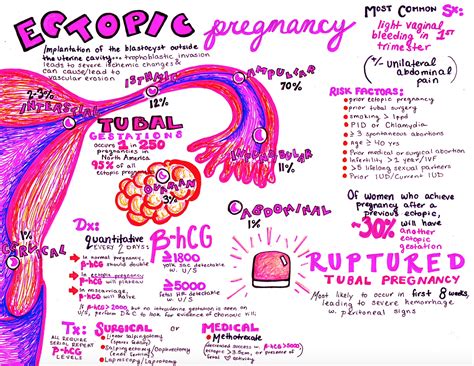 ECTOPIC pregnancy
Implantation of the blastocyst outside
the uterine cavity... trophoblastic invasion
leads to severe ischemic changes &
can cause/lead to
vascular erosion
MOST COMMON Sx:
light vaginal
bleeding in 1ST
trimester
(+/- Unilateral
abdominal
pain
RISK FACTORS:
prior ectopic pregnancy
prior tubal surgery
smoking > 1ppd
PID or Chlamydia
≥ 3 spontaneous abortions
age ≥ 40 yrs
Prior medical or surgical abortion
Infertility > 1 year/IVF
> 5 lifelong sexual partners
Prior IUD/Current IUD
INTERSTITIAL
2-3%
ISTHMIC
12%
AMPULLAR
70%
INFUNDIBULAR
11%
TUBAL
GESTATIONS
occurs 1 in 250
pregnancies in
North America
95% of all
ectopic
OVARIAN
3%
ABDOMINAL
CERVICAL
Of women who achieve
pregnancy after a
previous ectopic,
~30% will
have
another
ectopic
gestation
RUPTURED
TUBAL PREGNANCY
Most likely to occur in first 8 weeks,
leading to severe hemorrhage
w. peritoneal signs
Dx:
quantitative
EVERY 2 DAYS:
β-hCG
In normal pregnancy,
β-hCG should double
In ectopic pregnancy
β-hCG will plateau
In miscarriage,
β-hCG will halve
≥1800
yolk sac detectable
w. U/S
≥5000
Fetal HR detectable
w. U/S
If β-hCG >2000, but no intrauterine gestation is seen on
U/S, perform D&C to look for evidence of chorionic villi
Tx:
ALL REQUIRE
SERIAL REPEAT
β-hCG
LEVELS
SURGICAL or MEDICAL
Methotrexate